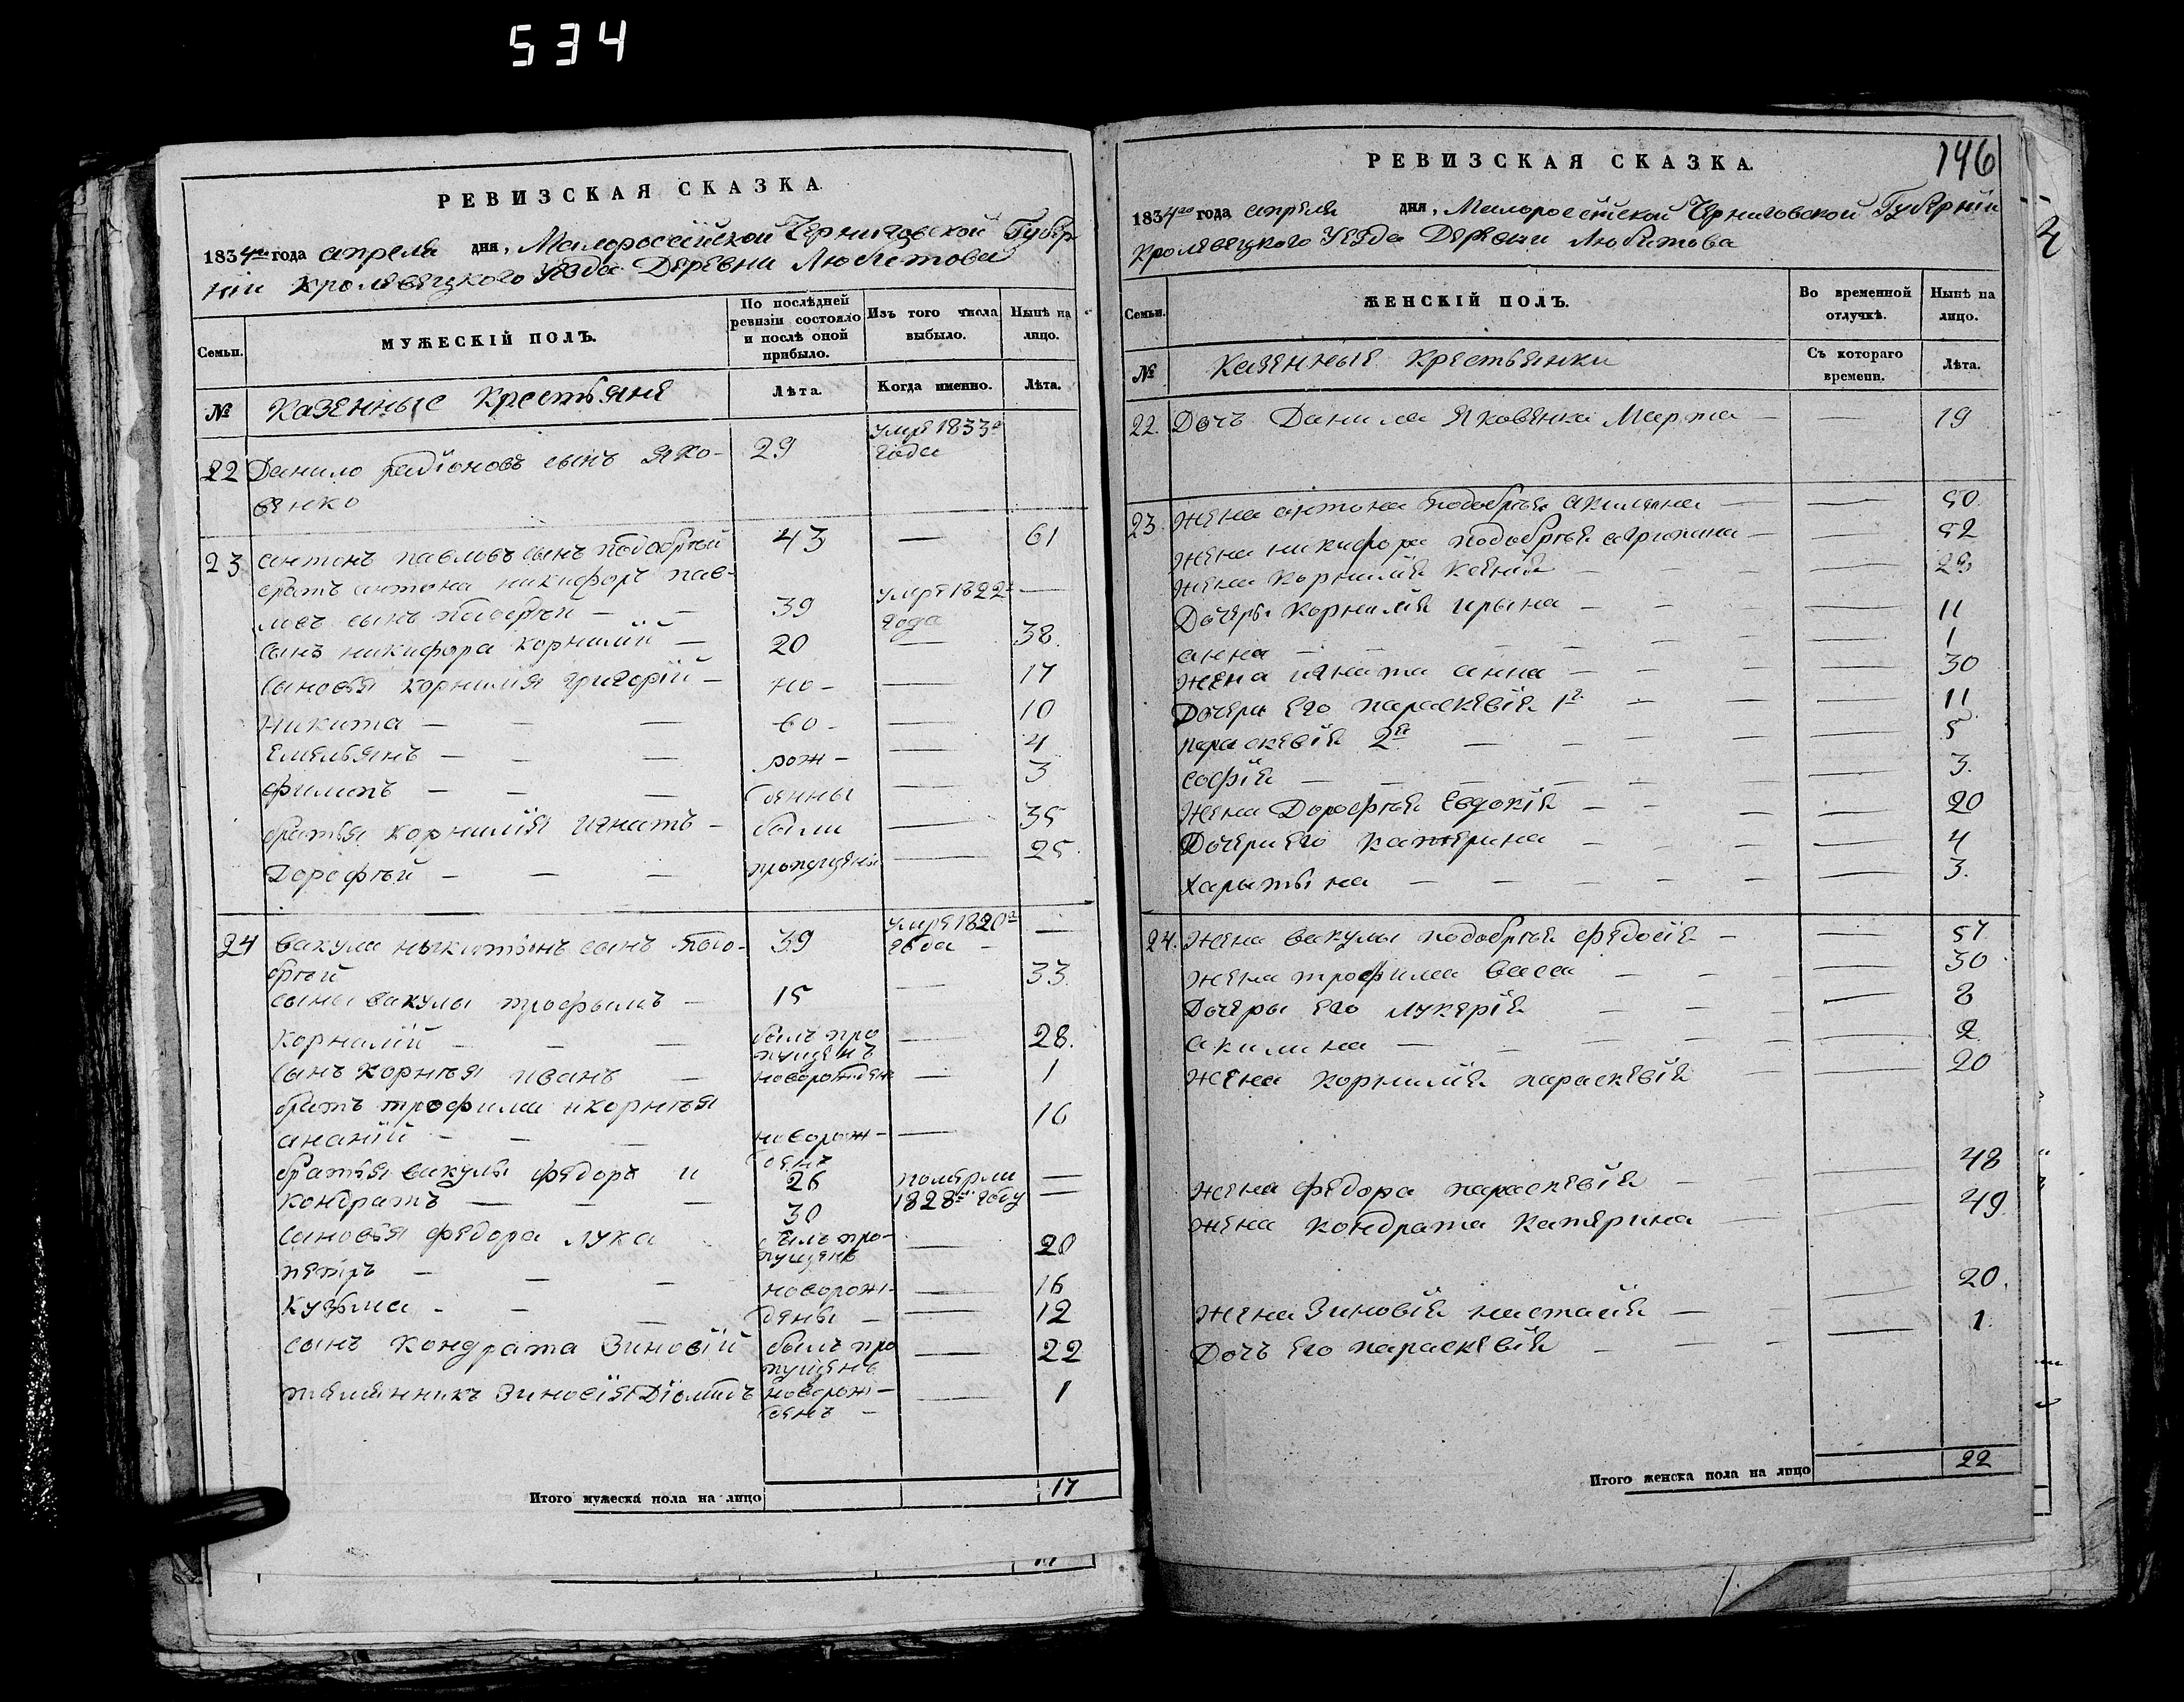 534
РЕВИЗСКАЯ СКАЗКА
1834го года апреля дня, Малороссійской Черниговской Губер
ніи Кролевецкого Уезда Деревни Любитова
Семьи.
МУЖЕСКІЙ ПОЛЪ.
По последней ревизіи состояло и послѣ оной прибыло.
Изъ того числа выбыло.
Нынѣ на лицо.
№
Казенные Крестьяне
Лѣта.
Когда именно.
Лѣта.
22 Данило радіоновъ сынъ Яко- 29 умре 1833го
венко года
23 антонъ павловъ сынъ подобрѣй 43 — 61
братъ антона никифоръ пав-
ловъ сынъ подобрѣй — 39 умре 1822го года —
сынъ никифора корнилій — 20 — 38.
сыновья корнилія григорій — но- — 17
никита — — во- — 10
емельянъ — — рож- — 4
филипъ — — денны — 3
братья корнилія игнатъ — были — 35
Дорофѣй — — — пропущены — 25
24 вакула никитинъ сынъ подо- 39 умре 1820го —
брѣй года —
сыны вакулы трофымъ — 15 — 33.
корнилій — — — былъ про — 28.
пущенъ
сынъ корнѣя иванъ — новорожденъ — 1
братъ трофима и корнѣя
ананій — — — новорож- — 16
денъ
братья вакулы федоръ и 26 померли —
кондратъ — — — 30 1828го году —
сыновья федора лука былъ про- — 20
пущенъ
петръ — — — новорож- — 16
кузьма — — — дены — — 12
сынъ кондрата Зиновій былъ про — 22
пущенъ
племянникъ Зиновія Діомидъ новорож- — 1
денъ —
Итого мужеска пола на лицо 17
146
РЕВИЗСКАЯ СКАЗКА.
1834го года апреля дня, Малороссійской Черниговской Губерніи
Кролевецкого Уезда Деревни Любитова
Семьи.
ЖЕНСКІЙ ПОЛЪ.
Во временной отлучкѣ.
Нынѣ на лицо.
№
Казенные Крестьянки
Съ котораго времени.
Лѣта.
22. Дочъ Данила Яковенка Марфа — — 19
23. жена антона подобрѣя акилина — — 50.
жена никифора подобрѣя агрипина — — 52
жена корнилія ксенія — — — —
Дочери корнилія ирына — — — — 11
анна — — — — — 1
жена игната анна — — — 30
Дочери его параскевія 1я — — — 11
параскевія 2я — — — — — 5
софія — — — — — — 3.
жена Дорофѣя Евдокія — — — — 20
Дочери его катерина — — — — 4
харытына — — — — — — 3.
24. жена вакулы подобрѣя федосія — — 57
жена трофима васса — — — — 30
Дочеры его лукерія — — — —
акилина — — — — — — 2
жена корнилія параскевія — — 20
жена федора параскевія — — 48
жена кондрата катерина — — 49.
жена Зиновія настасія — — — 20.
Дочъ его параскевія — — — — 1.
Итого женска пола на лицо 22